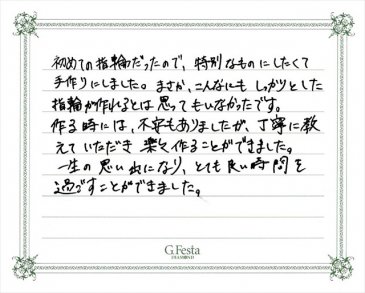 初めての指輪だったので、特別なものにしたくて
手作りにしました。まさか、こんなにも しっかりとした
指輪が作れるとは思ってもいなかったです。
作る時には、不安もありましたが、丁寧に教
えていただき 楽々作ることができました。
一生の思い出になり、とても良い時間を
過ごすことができました。
G.Festa
DIAMOND